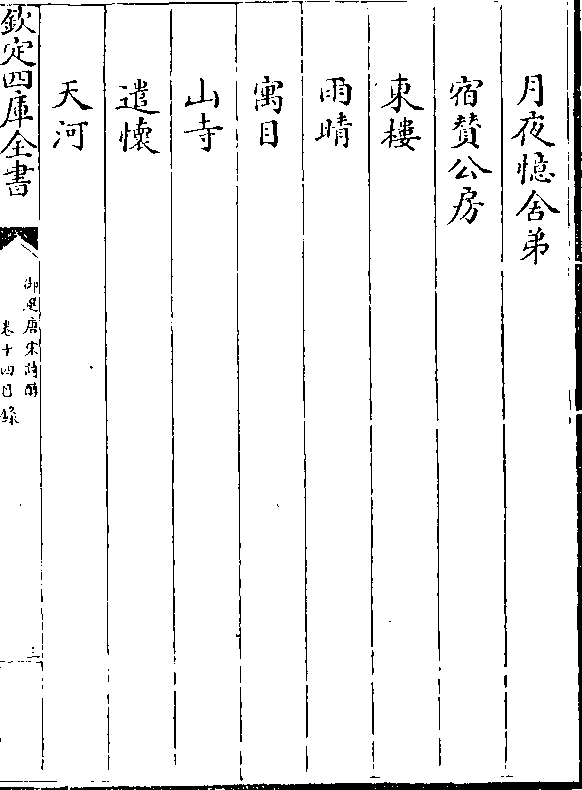 月夜憶舍弟
宿贊公房
東樓
雨晴
寓目
山寺
遣懷
天河
欽定四庫全書
御選唐宋詩醇
卷十四目錄
三